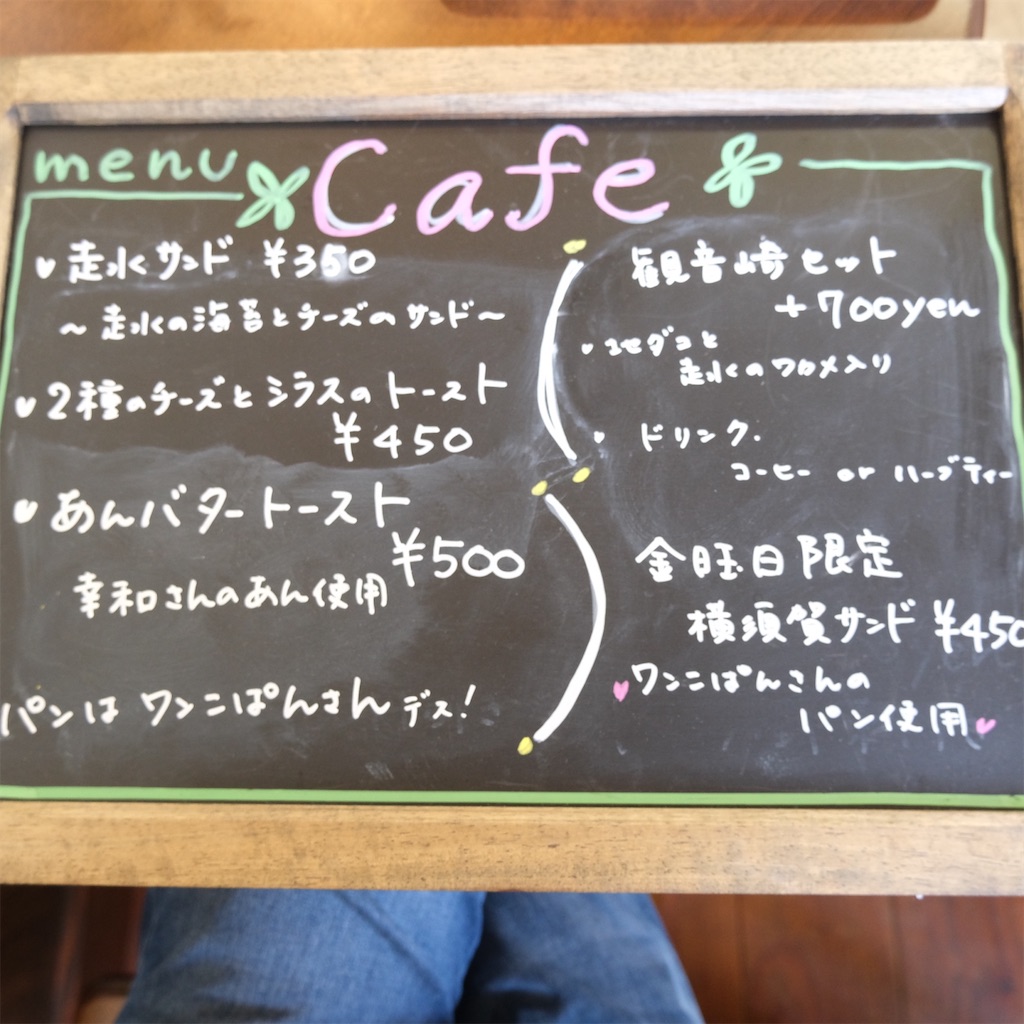 menu Cafe
走水サンド ¥350
～走水の海苔とチーズのサンド～
2種のチーズとシラスのトースト
¥450
あんバタートースト
¥500
幸和さんのあん使用
パンは ワンこぱんさん デス!
観音崎セット
+700yen
地ダコと
走水のワカメ入り
ドリンク.
コーヒー or ハーブティー
金曜日限定
横須賀サンド ¥450
ワンこぱんさんの
パン使用